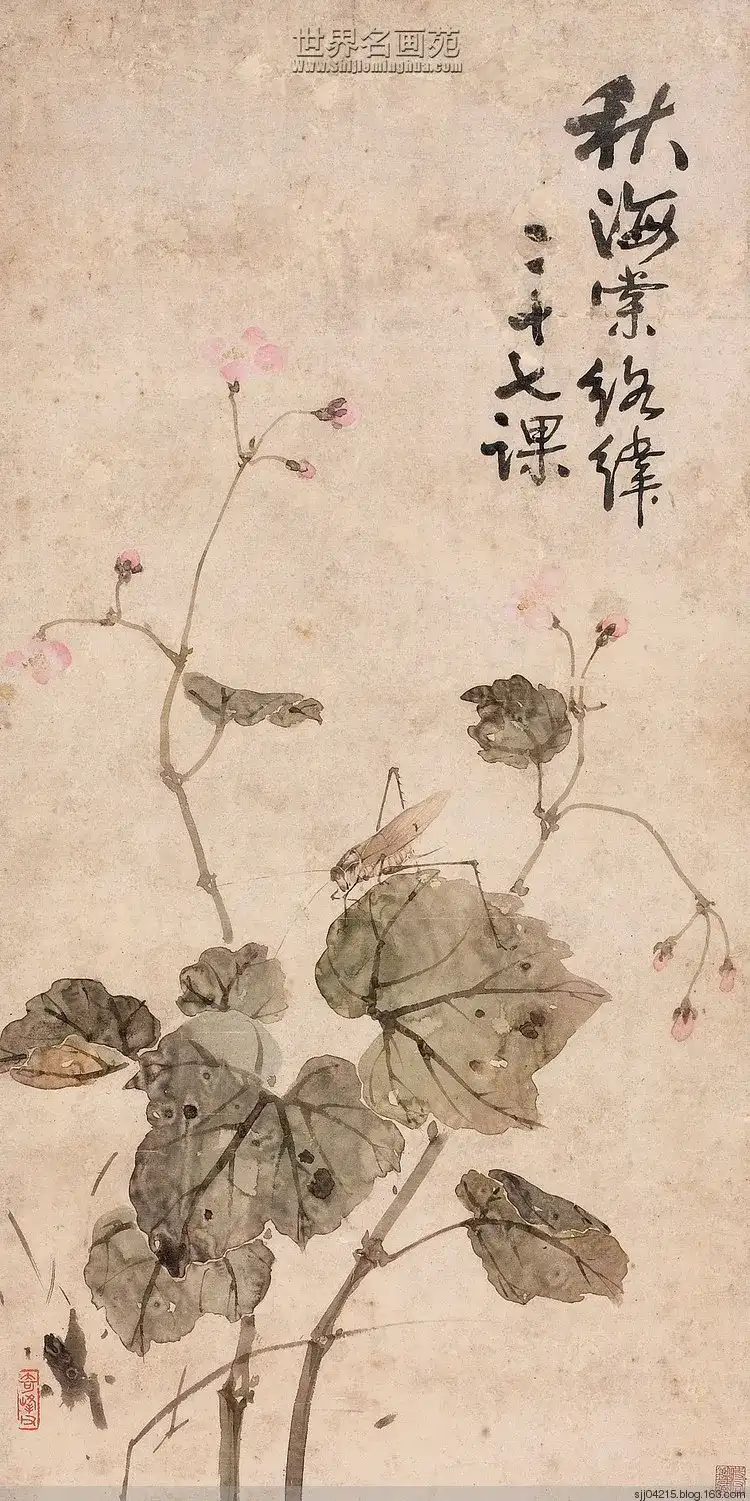 世界名画苑
www.shijieminghua.com
秋海棠络纬
二十七课
奇峰
sjj04215.blog.163.com